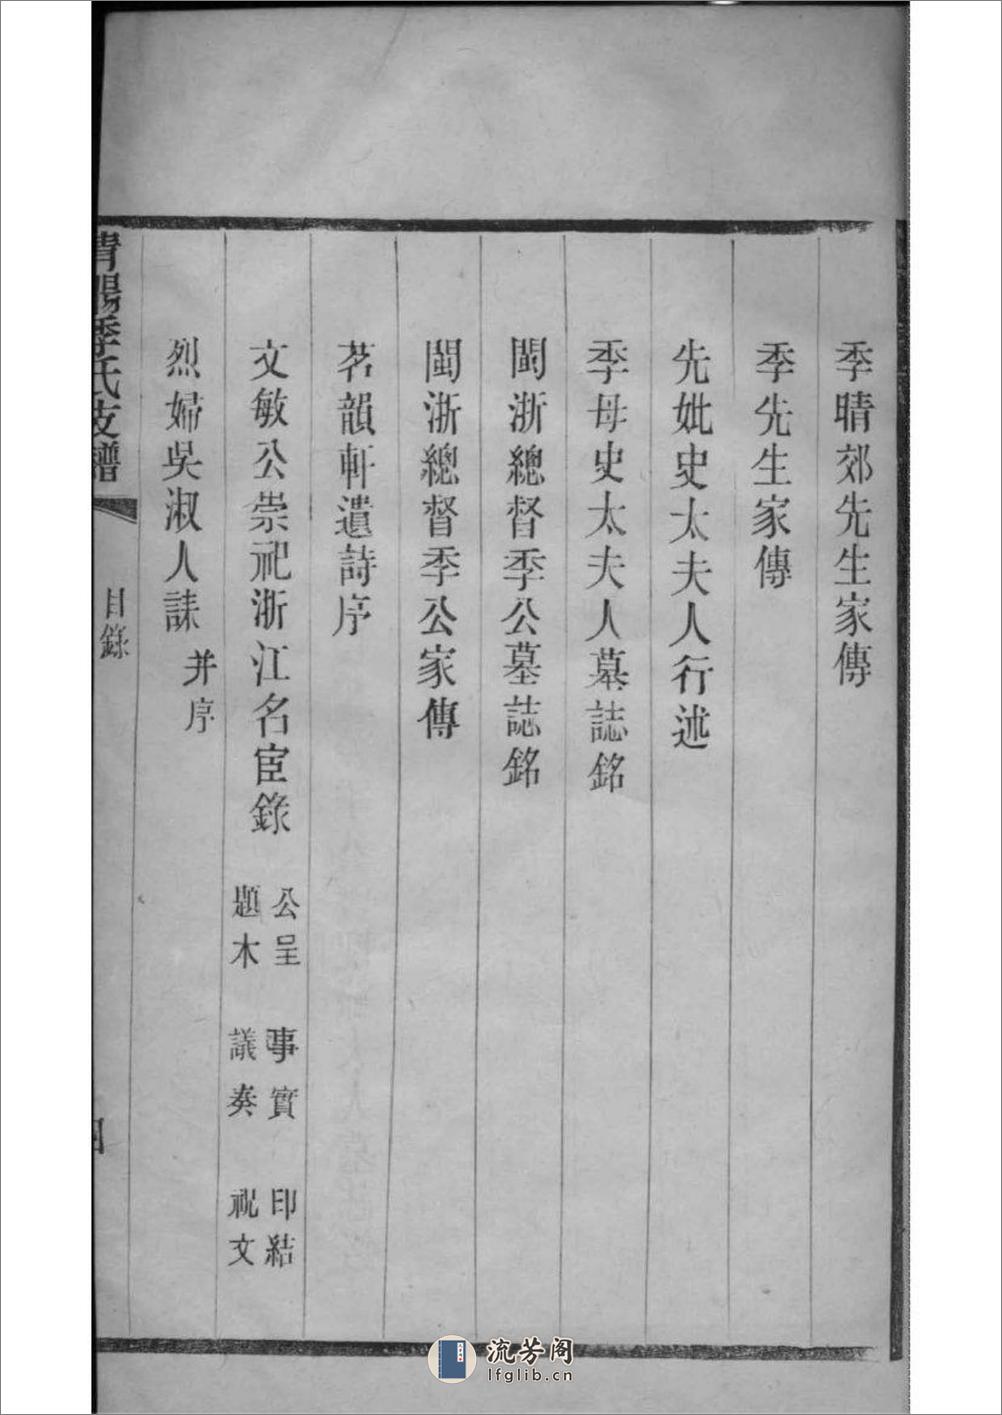 季晴郊先生家傳
季先生家傳
先妣史太夫人行述
季母史太夫人墓誌銘
閩浙總督季公墓誌銘
閩浙總督季公家傳
茗韻軒遺詩序
文敏公崇祀浙江名宦錄 公呈 事實 印結
題本 議奏 祝文
烈婦吳淑人誄 并序
青暘季氏支譜
目錄
四
流芳阁
lfglib.cn